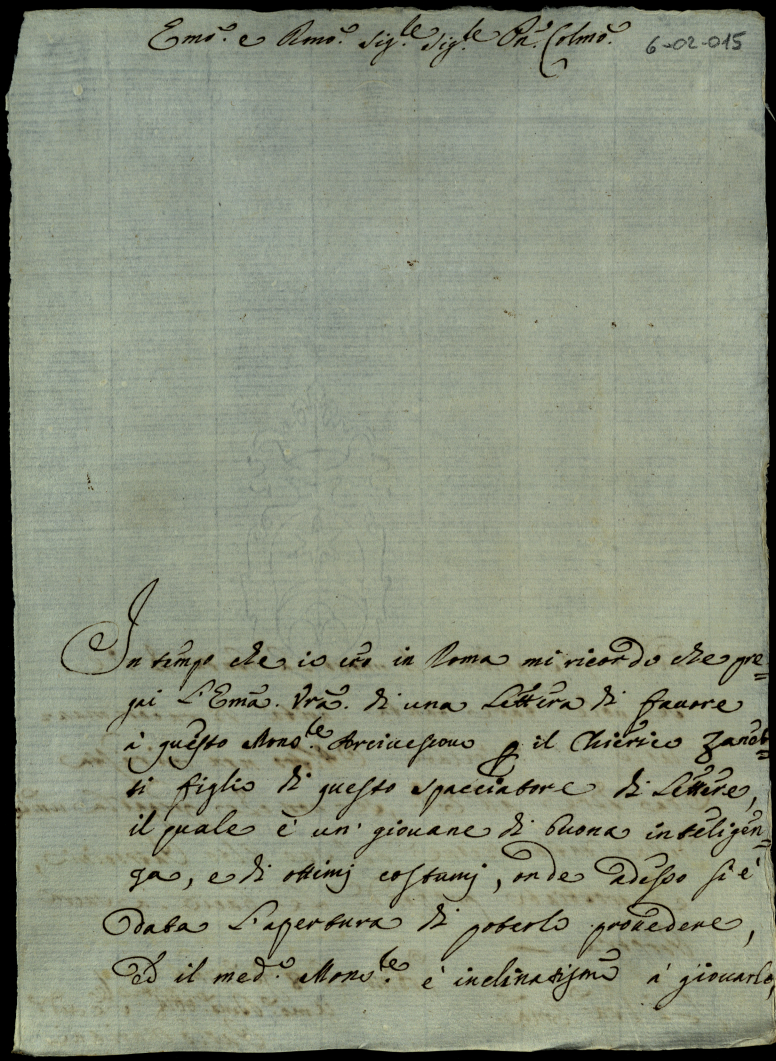 Emo. e Rmo. Sig.le Sig.le Pn. Colmo.
6-02-015
In tempo che io ero in Roma mi ricordo che pre=
gai L'Ema. Vra. di una Lettera di fauore
à questo Mons.le Arciuescouo p il Chierico Zanob=
ti figlio di questo spacciatore di Lettere,
il quale è un' giouane di buona inteligen=
za, e di ottimj costumj, onde adesso si è
data L'apertura di poterlo prouedere,
Ed il med.o Mons.le è inclinatissimo à giouarlo,